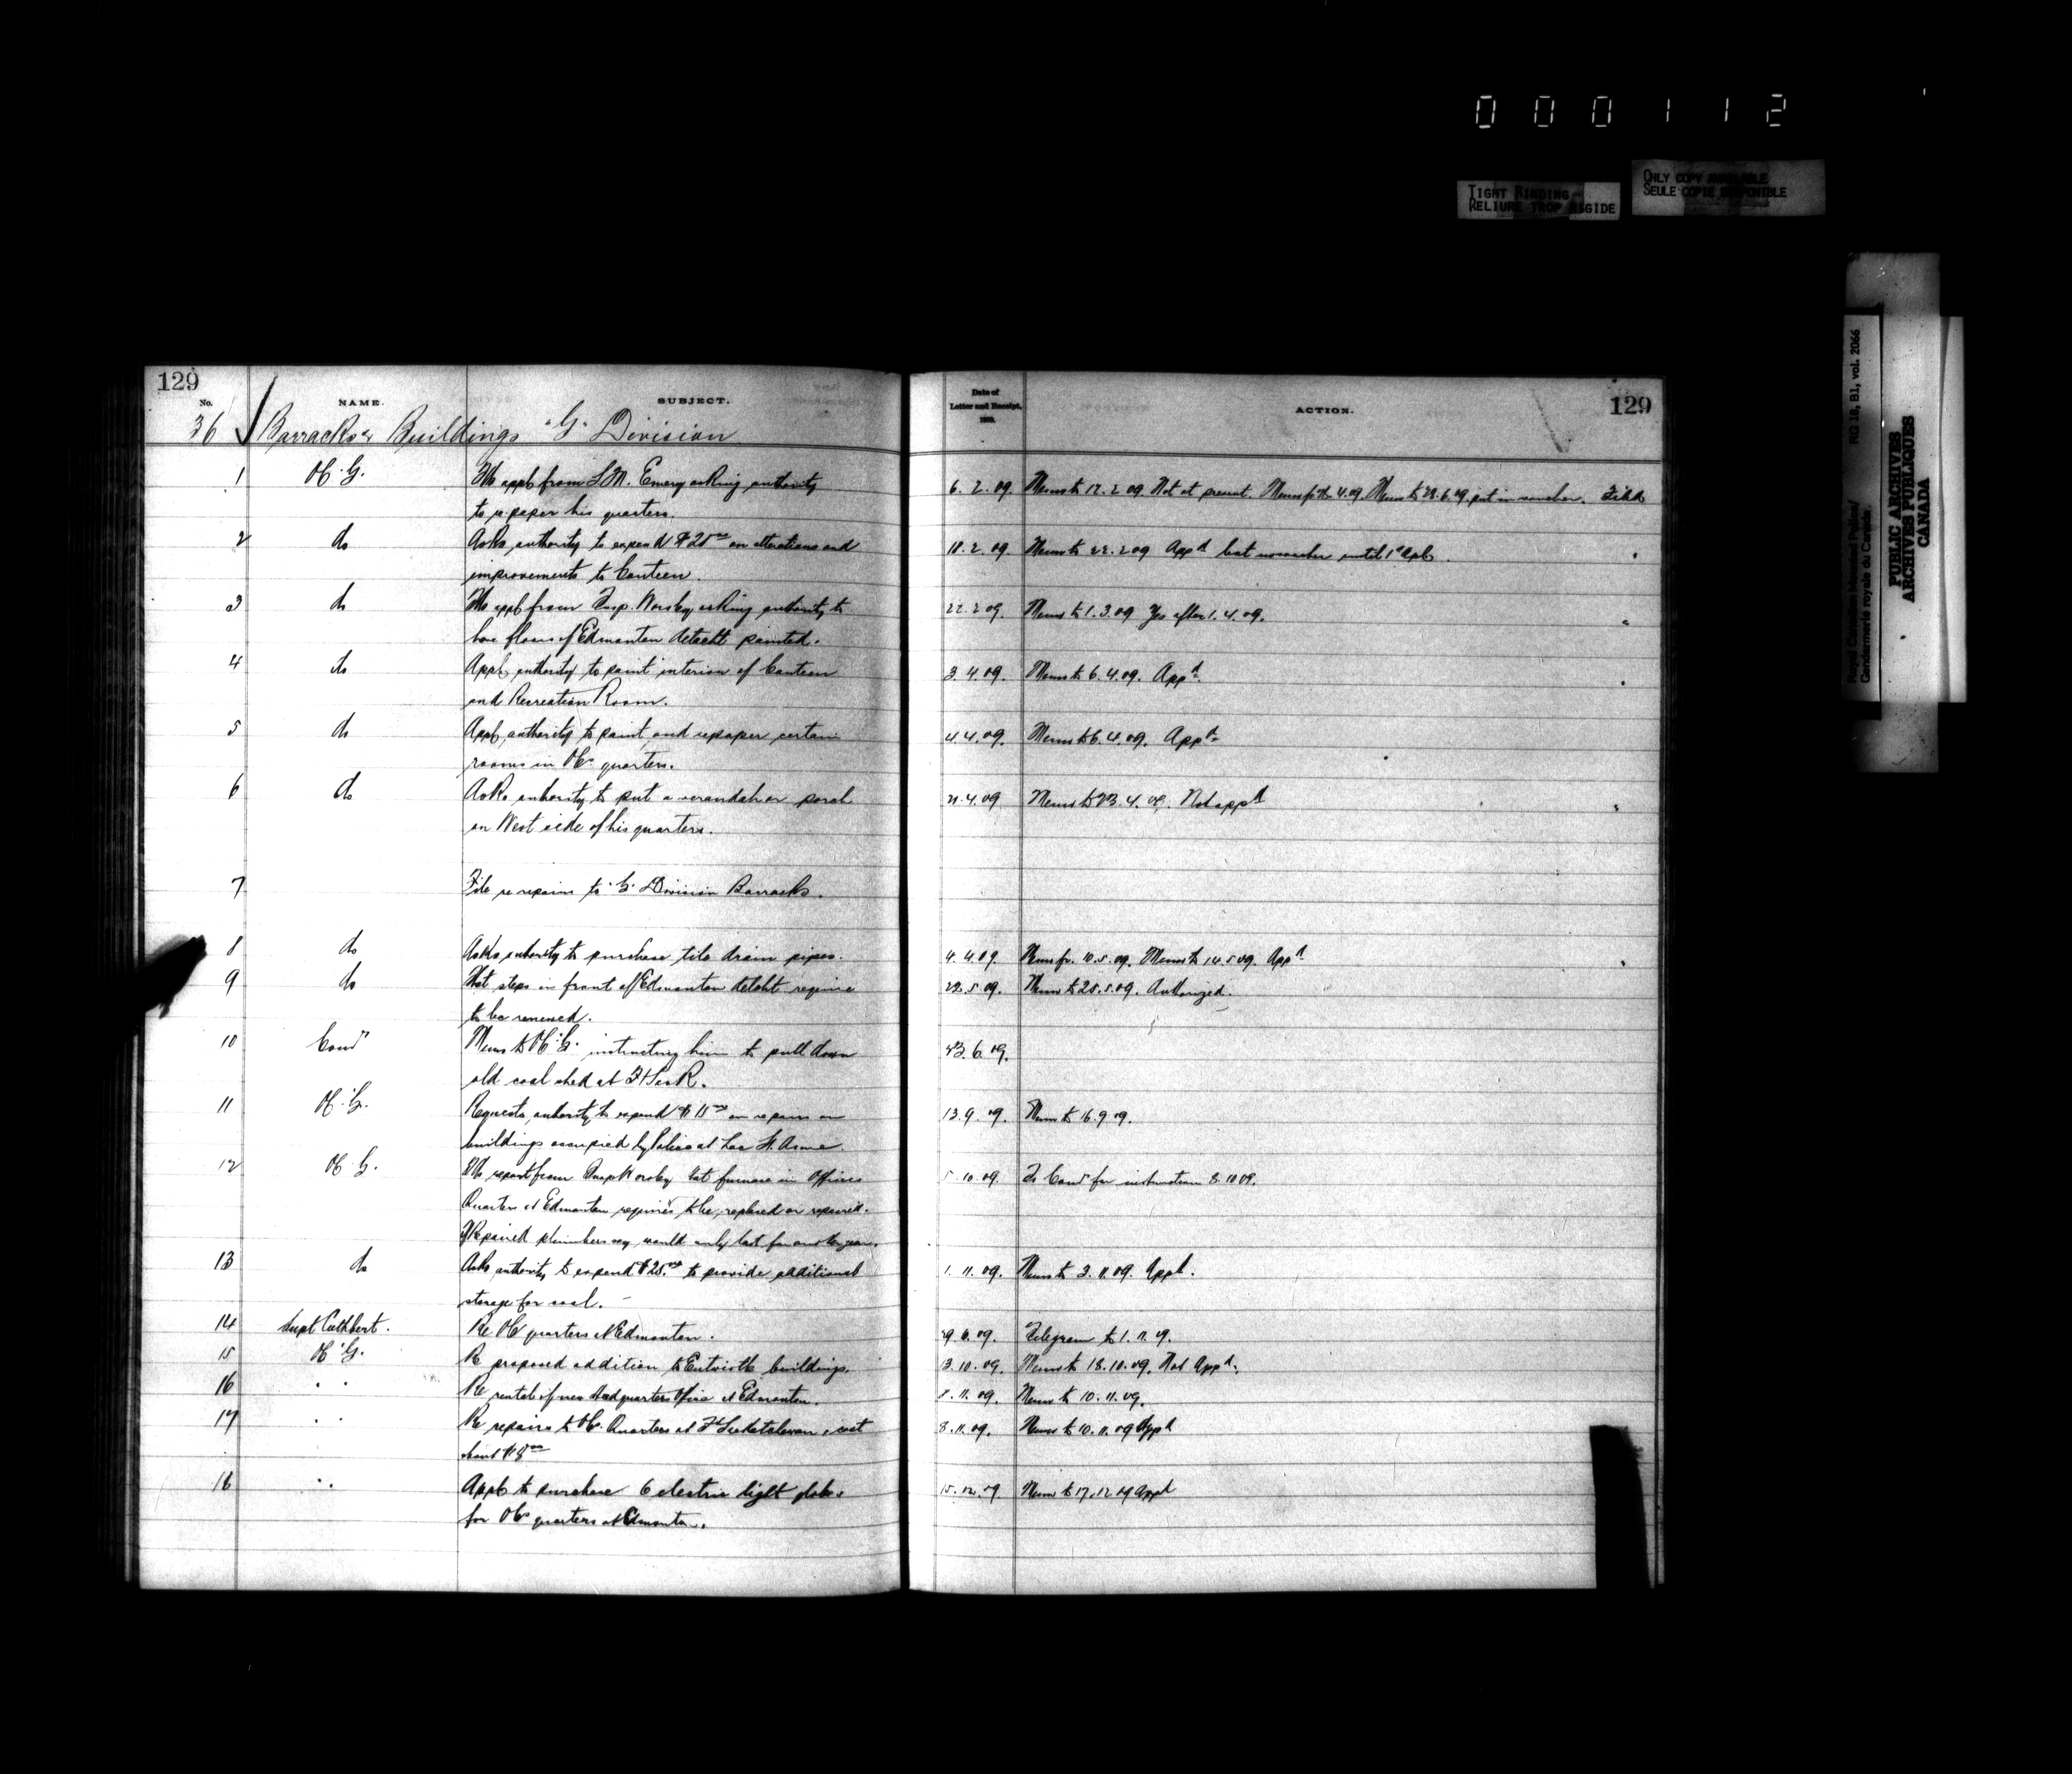 000112
TIGHT BINDING
RELIURE TROP RIGIDE
ONLY COPY AVAILABLE
SEULE COPIE DISPONIBLE
Royal Canadian Mounted Police/ RG 18, B1, vol. 2066
Gendarmerie royale du Canada.
PUBLIC ARCHIVES
ARCHIVES PUBLIQUES
CANADA
129
No. NAME. SUBJECT.
Date of Letter and Receipt, ACTION. 129
36 Barracks & Buildings "G" Division
1 OC "G". appl from S.M. Emery asking authority 6.2.09. Memo to 17.2.09. Not at present. Memo to 4.09. Memo to 6.09 put in voucher. Filed
to repaper his quarters.
2 do Asks authority to expend on alterations and 18.2.09. Memo to 22.2.09 Appd but until 1st Apl.
improvements to Canteen.
3 do appl from Insp. Worsley asking authority to 22.2.09. Memo to 1.3.09 Yes after 1.4.09.
have floors of Edmonton detacht painted.
4 do Appl authority to paint interior of Canteen 3.4.09. Memo to 6.4.09. Appd.
and Recreation Room.
5 do Appl authority to paint and repaper certain 4.4.09. Memo to 6.4.09. Appd.
rooms in OC's quarters.
6 do Asks authority to put a verandah or porch 21.4.09 Memo to 23.4.09. Not appd
on West side of his quarters.
7 File re repairs to "G" Division Barracks.
8 do Asks authority to purchase tile drain pipes. 4.4.09. Memo fr. 10.5.09. Memo to 14.5.09. Appd
9 do That steps in front of Edmonton detcht require 22.5.09. Memo to 28.5.09. Authorized.
to be renewed.
10 Comr Memo to OC "G" instructing him to pull down 23.6.09.
old coal shed at Ft Sask.
11 OC "G". Requests authority to expend on repairs on 13.9.09. Memo to 16.9.09.
buildings occupied by Police at Lac St. Anne.
12 OC "G". report from Insp Worsley that furnace in Officers 5.10.09. To Comr for instruction 8.10.09.
Quarters at Edmonton requires to be replaced or repaired.
If Repaired plumbers say would only last for another year.
13 do Asks authority to expend to provide additional 1.11.09. Memo to 3.11.09. Appd.
storage for coal.
14 Supt Cuthbert. Re OC quarters at Edmonton. 29. .09. Telegram to 1.11.09.
15 OC "G". Re proposed addition to Entwistle buildings. 13.10.09. Memo to 18.10.09. Not Appd.
16 " " Re rental of new Headquarters Office at Edmonton. 8.11.09. Memo to 10.11.09.
17 " " Re repairs to OC's Quarters at Ft Saskatchewan, cost 8.11.09. Memo to 10.11.09 Appd
about $8.00
16 " " Appl to purchase 6 electric light globes 15.12.09. Memo to 17.12.09 Appd
for OC's quarters at Edmonton.